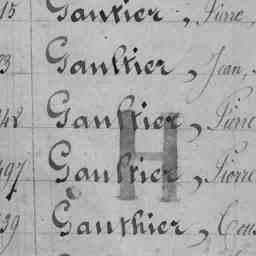 15 Gautier, Pierre,
3 Gaultier, Jean,
42 Gaultier, Pierre
497 Gaultier, Pierre
H
39 Gauthier,